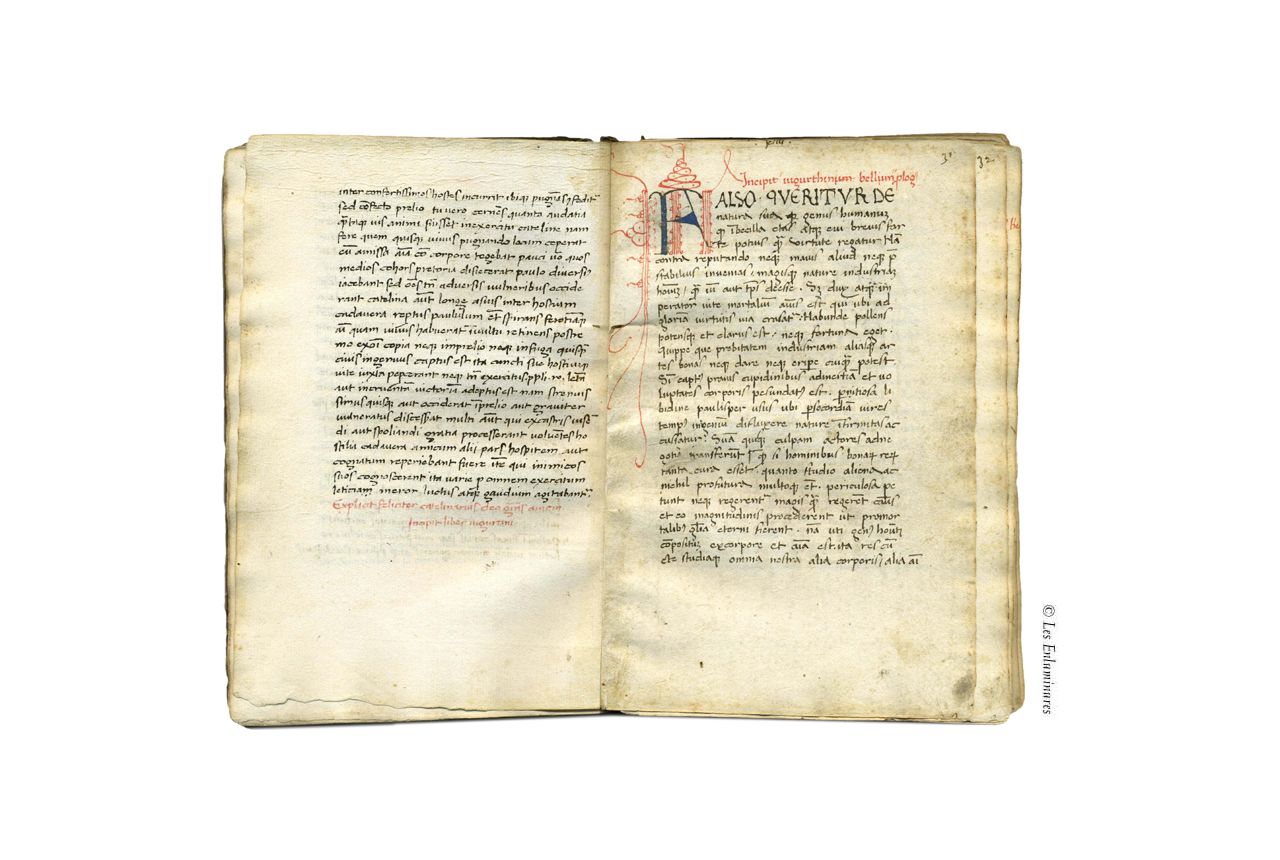 inter confertissimos hostes incurrit ibiq; pugnans cōfoditr
sed cōfecto prelio tu vero cerneres quanta audatia
q̄taq; vis animi fuisset in exercitu cateline nam
fere quem quisq; vivus pugnando locum ceperat
eū amissa aīa corpore togebat pauci vo quos
medios cohors pretoria disiecerat paulo diversi9
iacebant sed oēs tn̄ adversis vulneribus occide
rant catelina aut longe a suis inter hostium
cadavera reptus paululum et spirans ferotiāq;
aī quam vivus habuerat ī vultu retinens postre
mo ex oī copia neq; in prelio neq; in fuga quisq;
civis ingenuus captus est ita cuncti sue hostiūq;
vite iuxta peperant neq; tn̄ exercitus ppli. ro. letā
aut incruentā victoriā adeptus est nam strenuis
simus quisq; aut occiderat ī prelio aut graviter
vulneratus discesserat multi aūt qui ex castris vise
di aut spoliandi gratia processerant volventes ho
stilia cadavera amicum alii pars hospitem aut
cognatum reperiebant fuere itē qui inimicos
suos cognoscerent ita varie p omnem exercitum
leticia meror luctus atq; gaudium agitabantr
Explicit feliciter catelinarius deo grās amen
Incipit liber iugurtini
31 32
Incipit iugurthinum bellum plog9
FALSO QVERITVR DE
natura sua genus humanum
q ībecilla etas atq; evi brevis for
te potius q̄ virtute regatur Nā
contra reputando neq; maius aliud neq; p̄
stabilius invenias magisq; nature industriam
hominū q̄ vim aut tps deesse. Sz dux atq; im
perator vite mortaliū animus est qui ubi ad
gloriā virtutis via grasatr habunde pollens
potensq; et clarus est. neq; fortuna eget.
quippe que probitatem industriam aliasq; ar
tes bonas neq; dare neq; eripe cuiq; potest.
Sī captus pravis cupidinibus ad inertiā et vo
luptates corporis pesundatus est. pnitiosa li
bidine paulisper usus ubi p socordiā vires
tempus ingenium difluxere nature īfirmitas ac
cusatur. Suā quiq; culpam actores ad ne
gotia transferūt qd si hominibus bonarū rerū
tanta cura esset. quanto studio aliena ac
nichil profutura multoq; et. periculosa pe
tunt neq; regerentr magis q̄ regerēt casus
et eo magnitudinis procederent ut pro mor
talibus glīa eterni fierent. nā uti genus hoīm
cōpositum ex corpore et aīa est. ita res cū
cte studiaq; omnia nostra alia corporis alia aī
© Les Enluminures